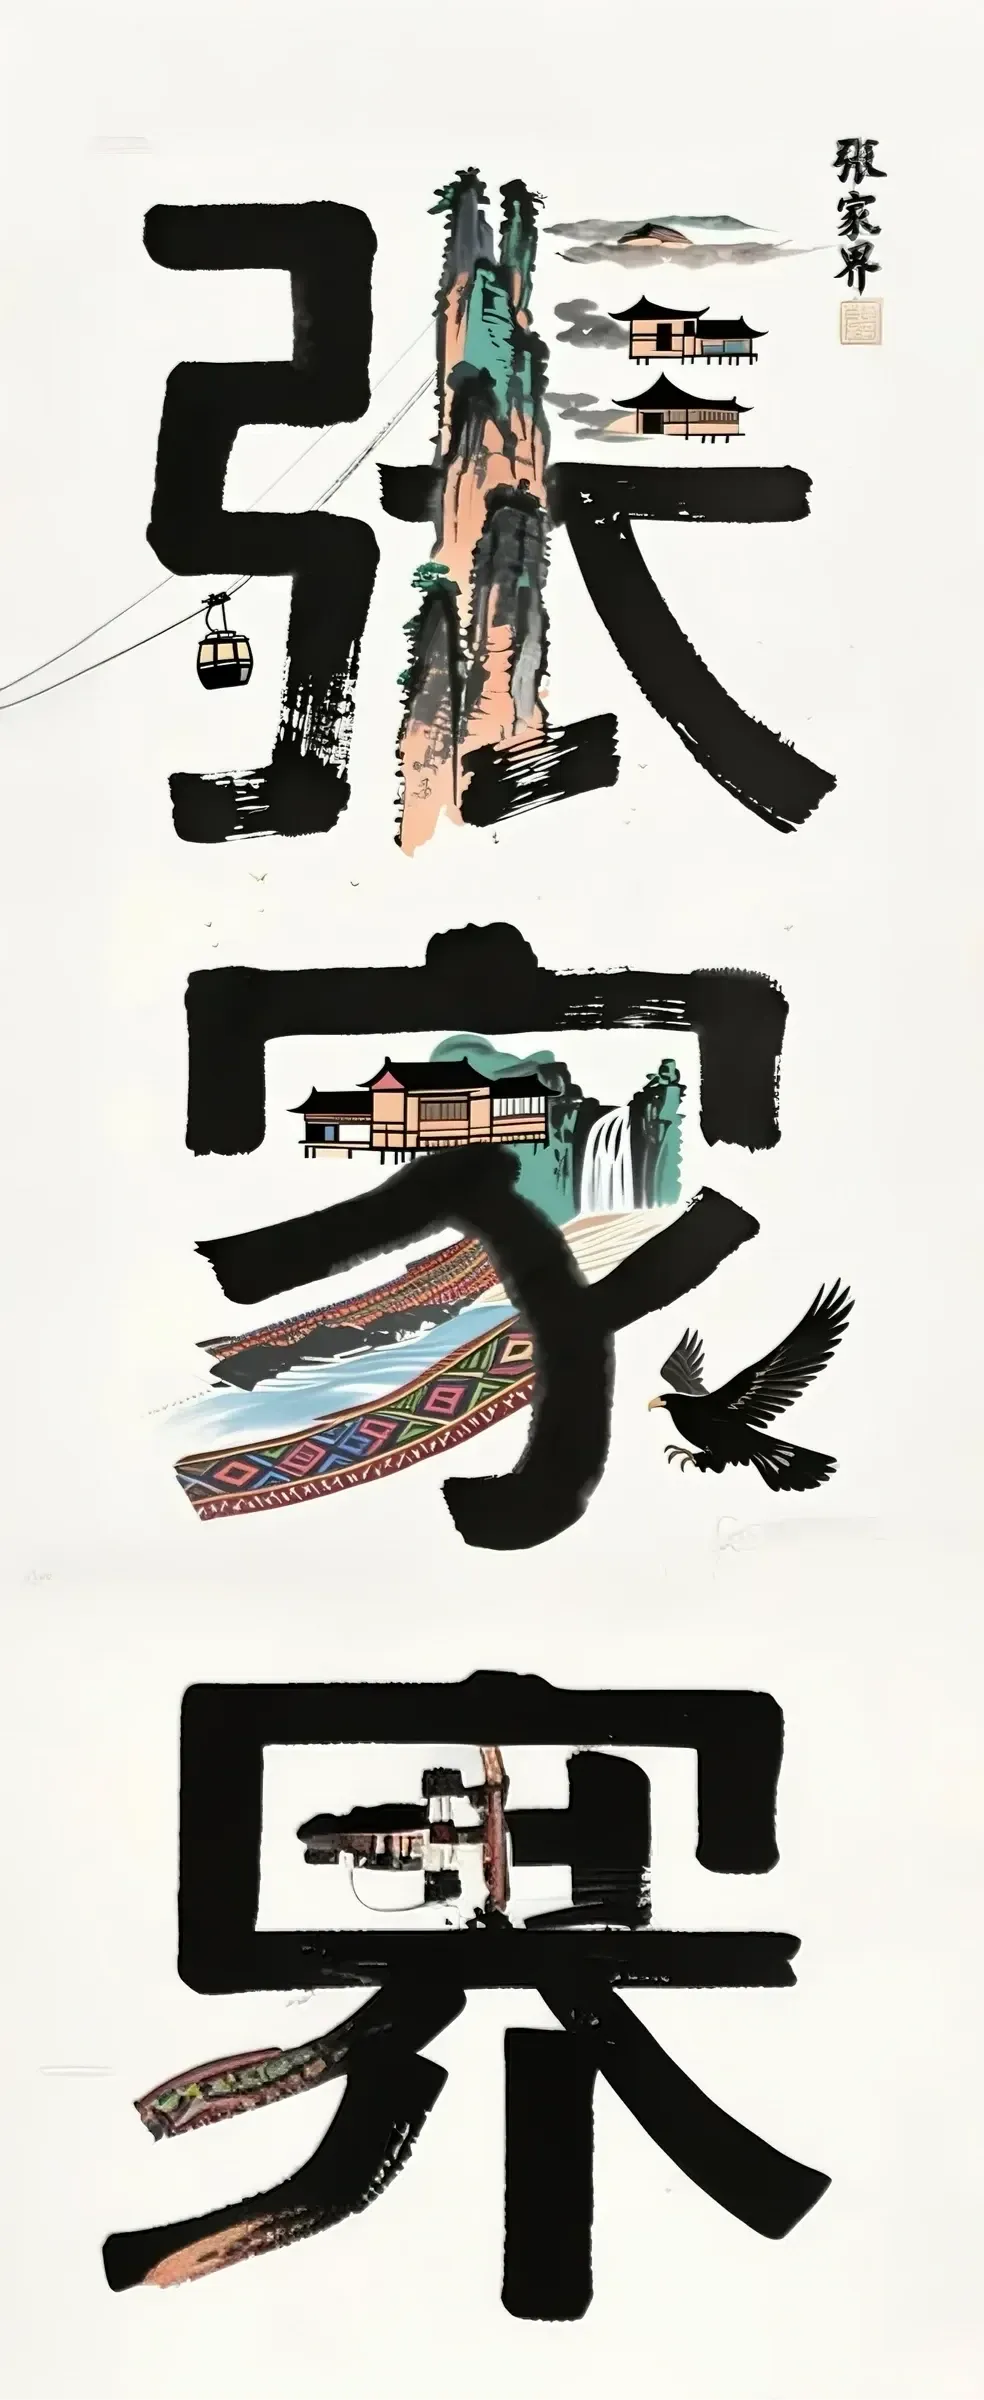 張家界
張
家
界